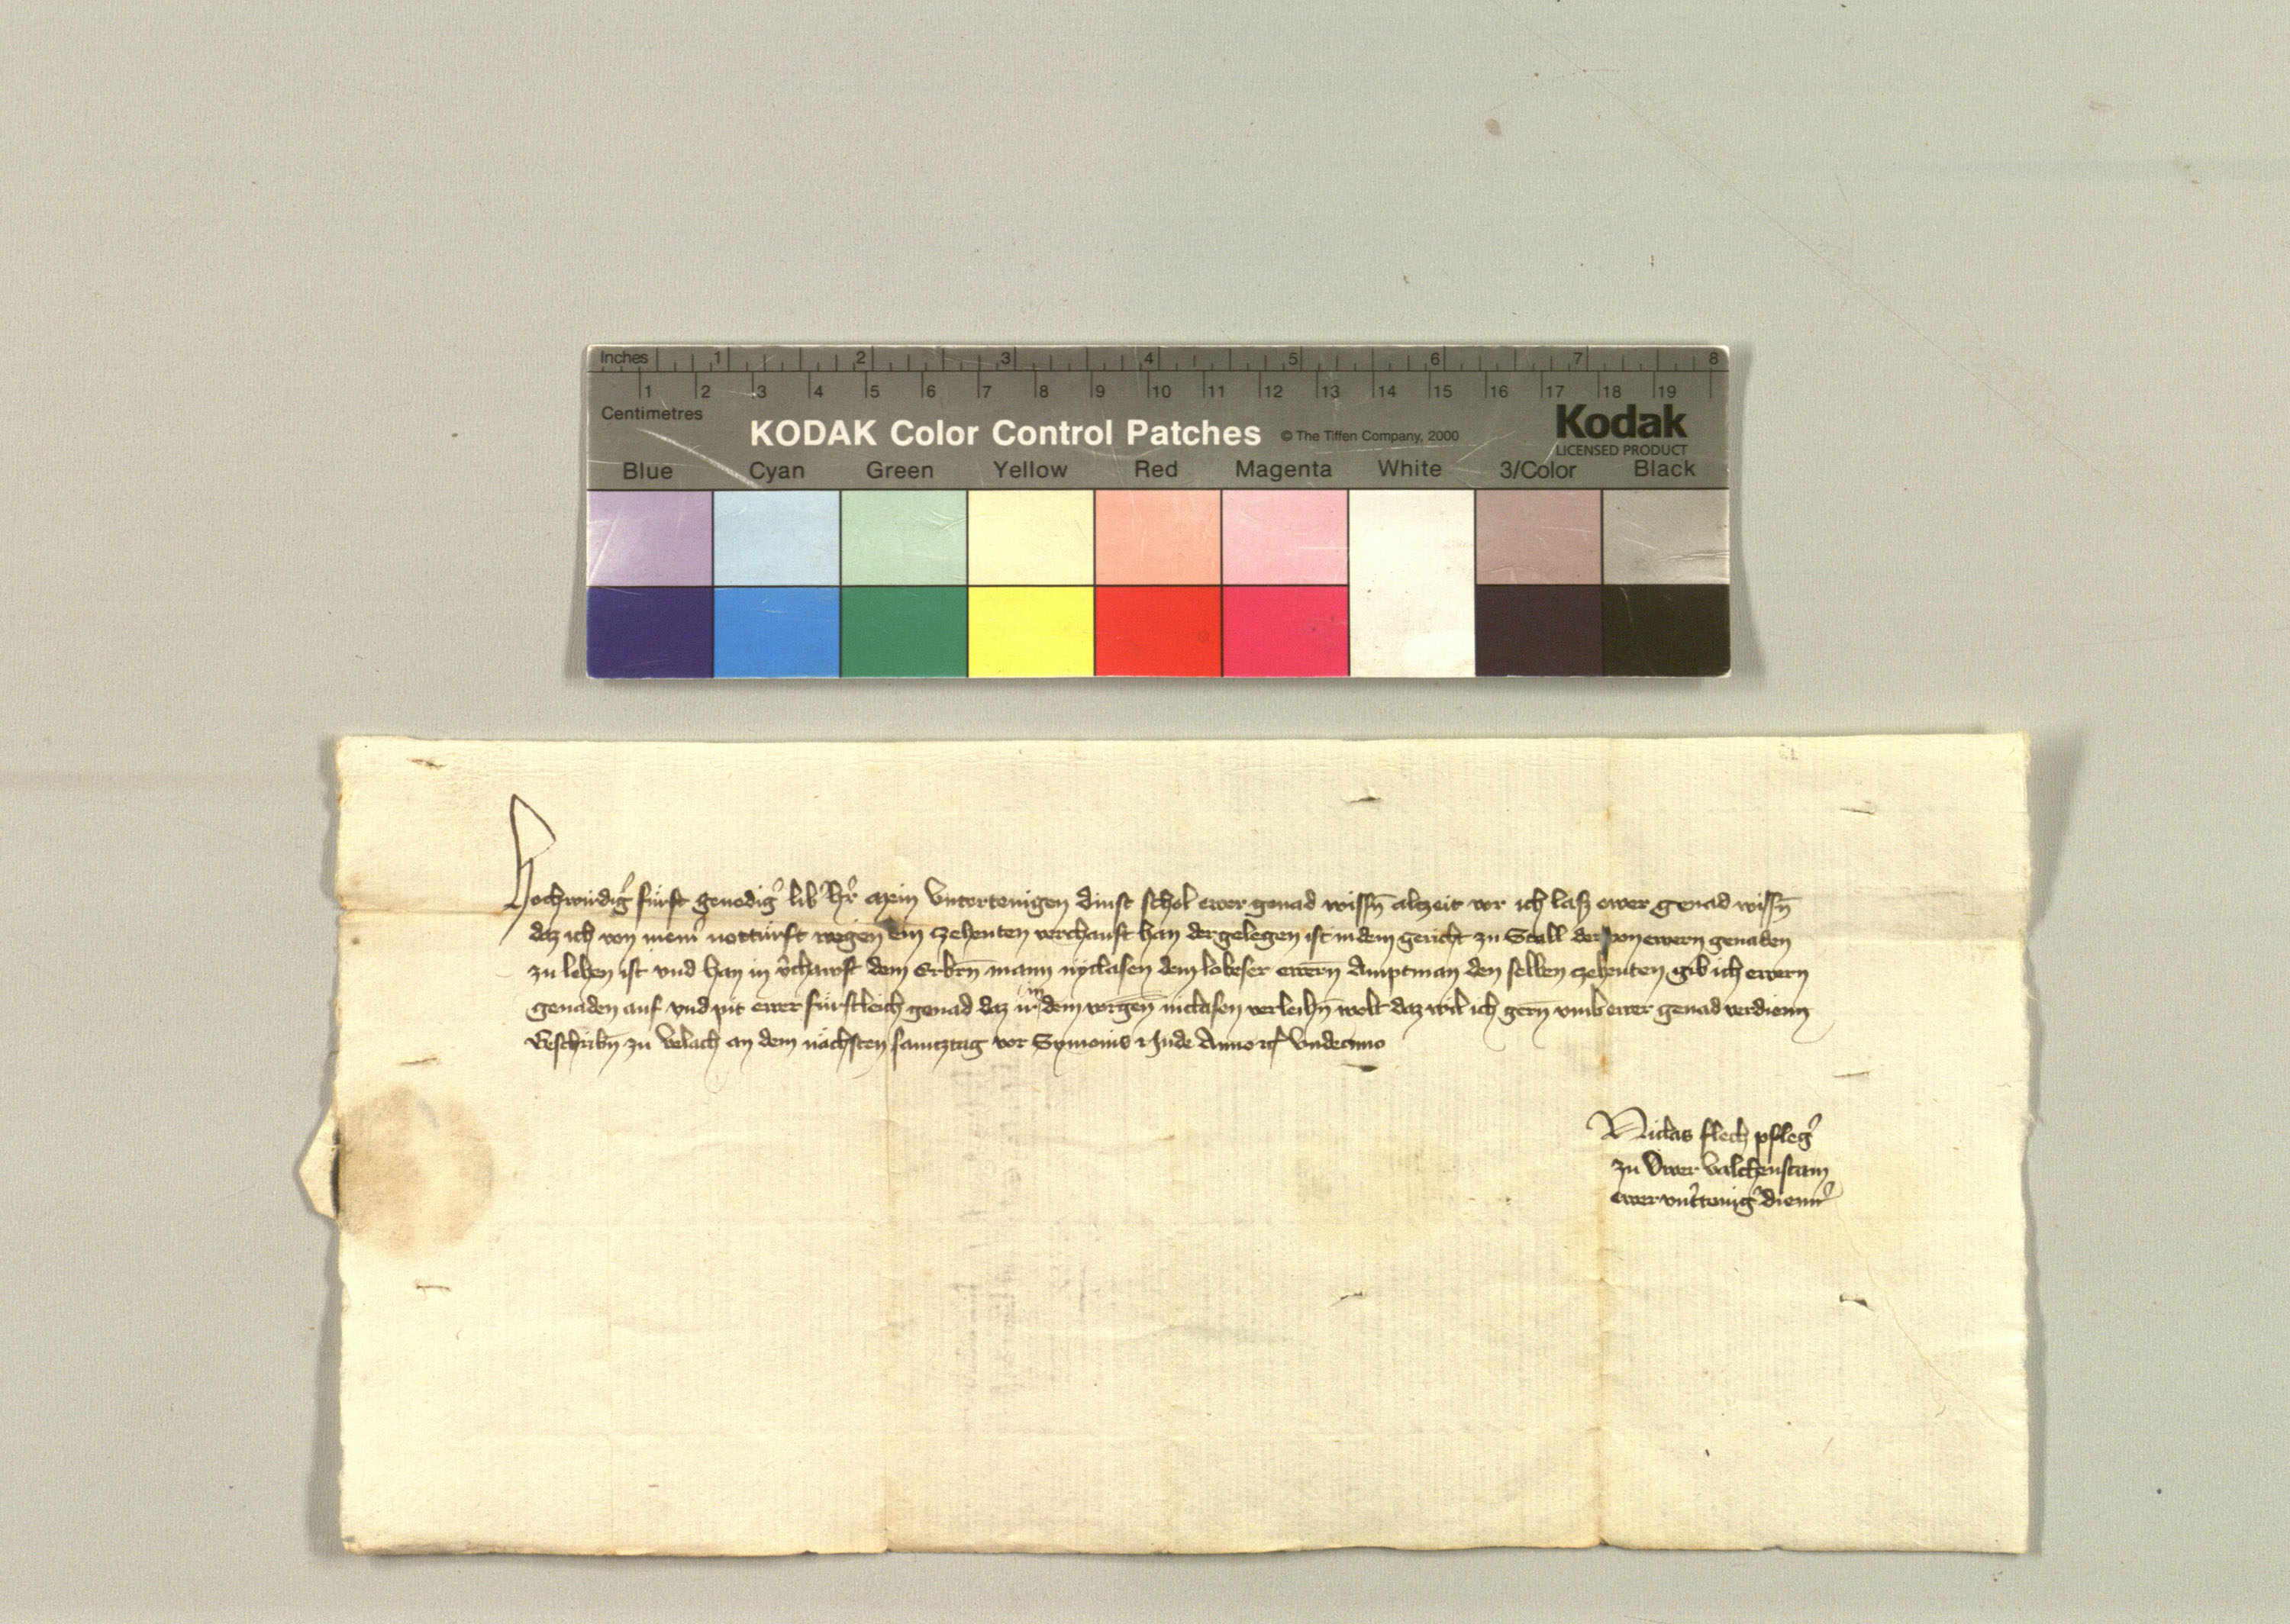 Inches 1 2 3 4 5 6 7 8
1 2 3 4 5 6 7 8 9 10 11 12 13 14 15 16 17 18 19
Centimetres
KODAK Color Control Patches © The Tiffen Company, 2000 Kodak
LICENSED PRODUCT
Blue Cyan Green Yellow Red Magenta White 3/Color Black
Hochwirdig' fürst genedig' lib' h'r mein vntertenigen dinst schol ewer genad wissn̄ alzeit vor ich lasz ewer genad wissn̄
daz ich von meim' notturft wegen ein zehenten verchauft han der gelegen ist in dem gericht zu Stall der von ewern genaden
zu lehen ist vnd han in v'chawft dem Erbrn̄ mann nyclasen dem lobeser ewern̄ Amptman den selben zehenten gib ich ewern
genaden auf vnd pit ewer fürstleich genad daz ir im dem vorgen̄ niclasen verleihn̄ welt daz wil ich gern̄ vmb ewer genad verdienn
Geschribn̄ zu Velach an dem nächsten samztag vor Symonis et Jude Anno etc vndecimo
Niclas flech pfleg'
zu Ober valchenstain
ewer vnt'tenig' dienn'